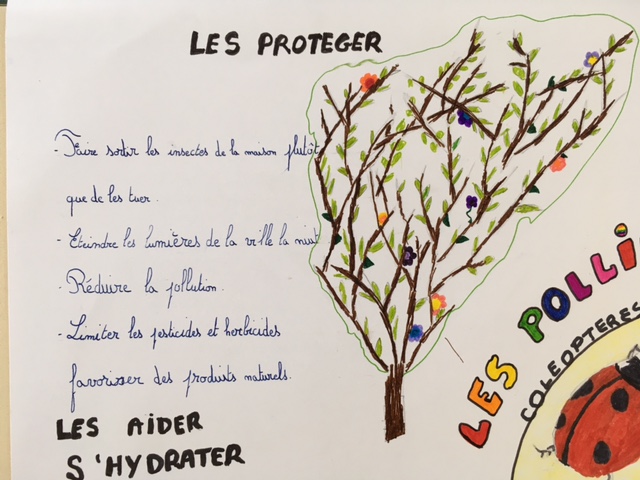 LES PROTEGER
- Faire sortir les insectes de la maison plutôt
que de les tuer.
- Eteindre les lumières de la ville la nuit
- Réduire la pollution.
- Limiter les pesticides et herbicides
favoriser des produits naturels.
LES AiDER
S'HYDRATER
LES POLLi
COLEOPTERES